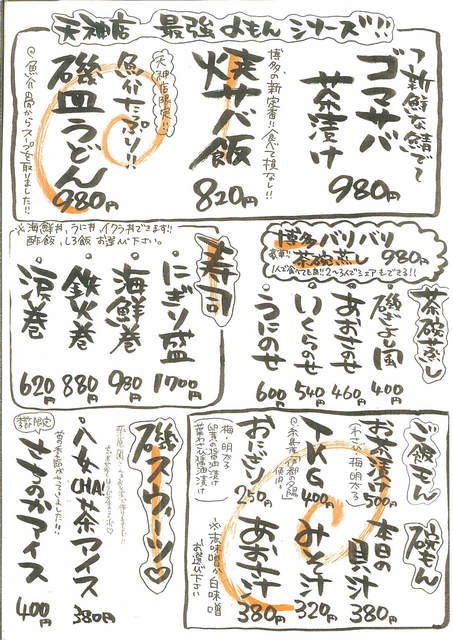 天神店 最強よもん シリーズ!!
新鮮な鯖で
ゴマサバ
茶漬け
980円
博多の新定番!!食べて損なし!!
焼サバ飯
820円
天神店限定!!
魚介たっぷり!!
磯皿うどん
980円
@魚介の骨からスープを取りました!!
博多バリバリ
茶碗蒸し
980円
1人で食べても良し!!2〜3人でシェアもできる!!
※海鮮丼、うに丼、イクラ丼できます!!
酢飯、しろ飯 お選び下さい。
寿司
にぎり盛
1700円
海鮮巻
980円
鉄火巻
880円
涙巻
620円
茶碗蒸し
磯ぎよし風
400円
あおさのせ
460円
いくらのせ
540円
うにのせ
600円
ご飯もん
お茶漬け
(わさび 梅 明太る)
500円
TKG
400円
おにぎり
250円
梅・明太る
卵黄の醤油漬け
葉わさび醤油漬け
碗もん
本日の貝汁
380円
みそ汁
320円
あおさ汁
380円
※赤味噌か白味噌
お選び下さい
磯スウィーツ♡
八女CHA!茶アイス
380円
さちのかアイス
400円